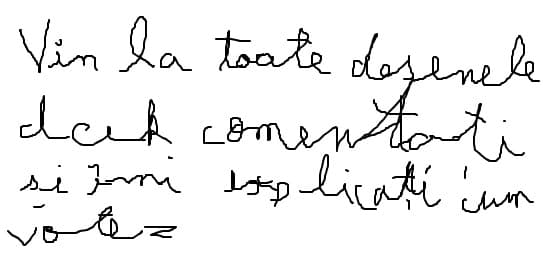 Vin la toate desenele
dcek comentati
si imi explicații cum
votez